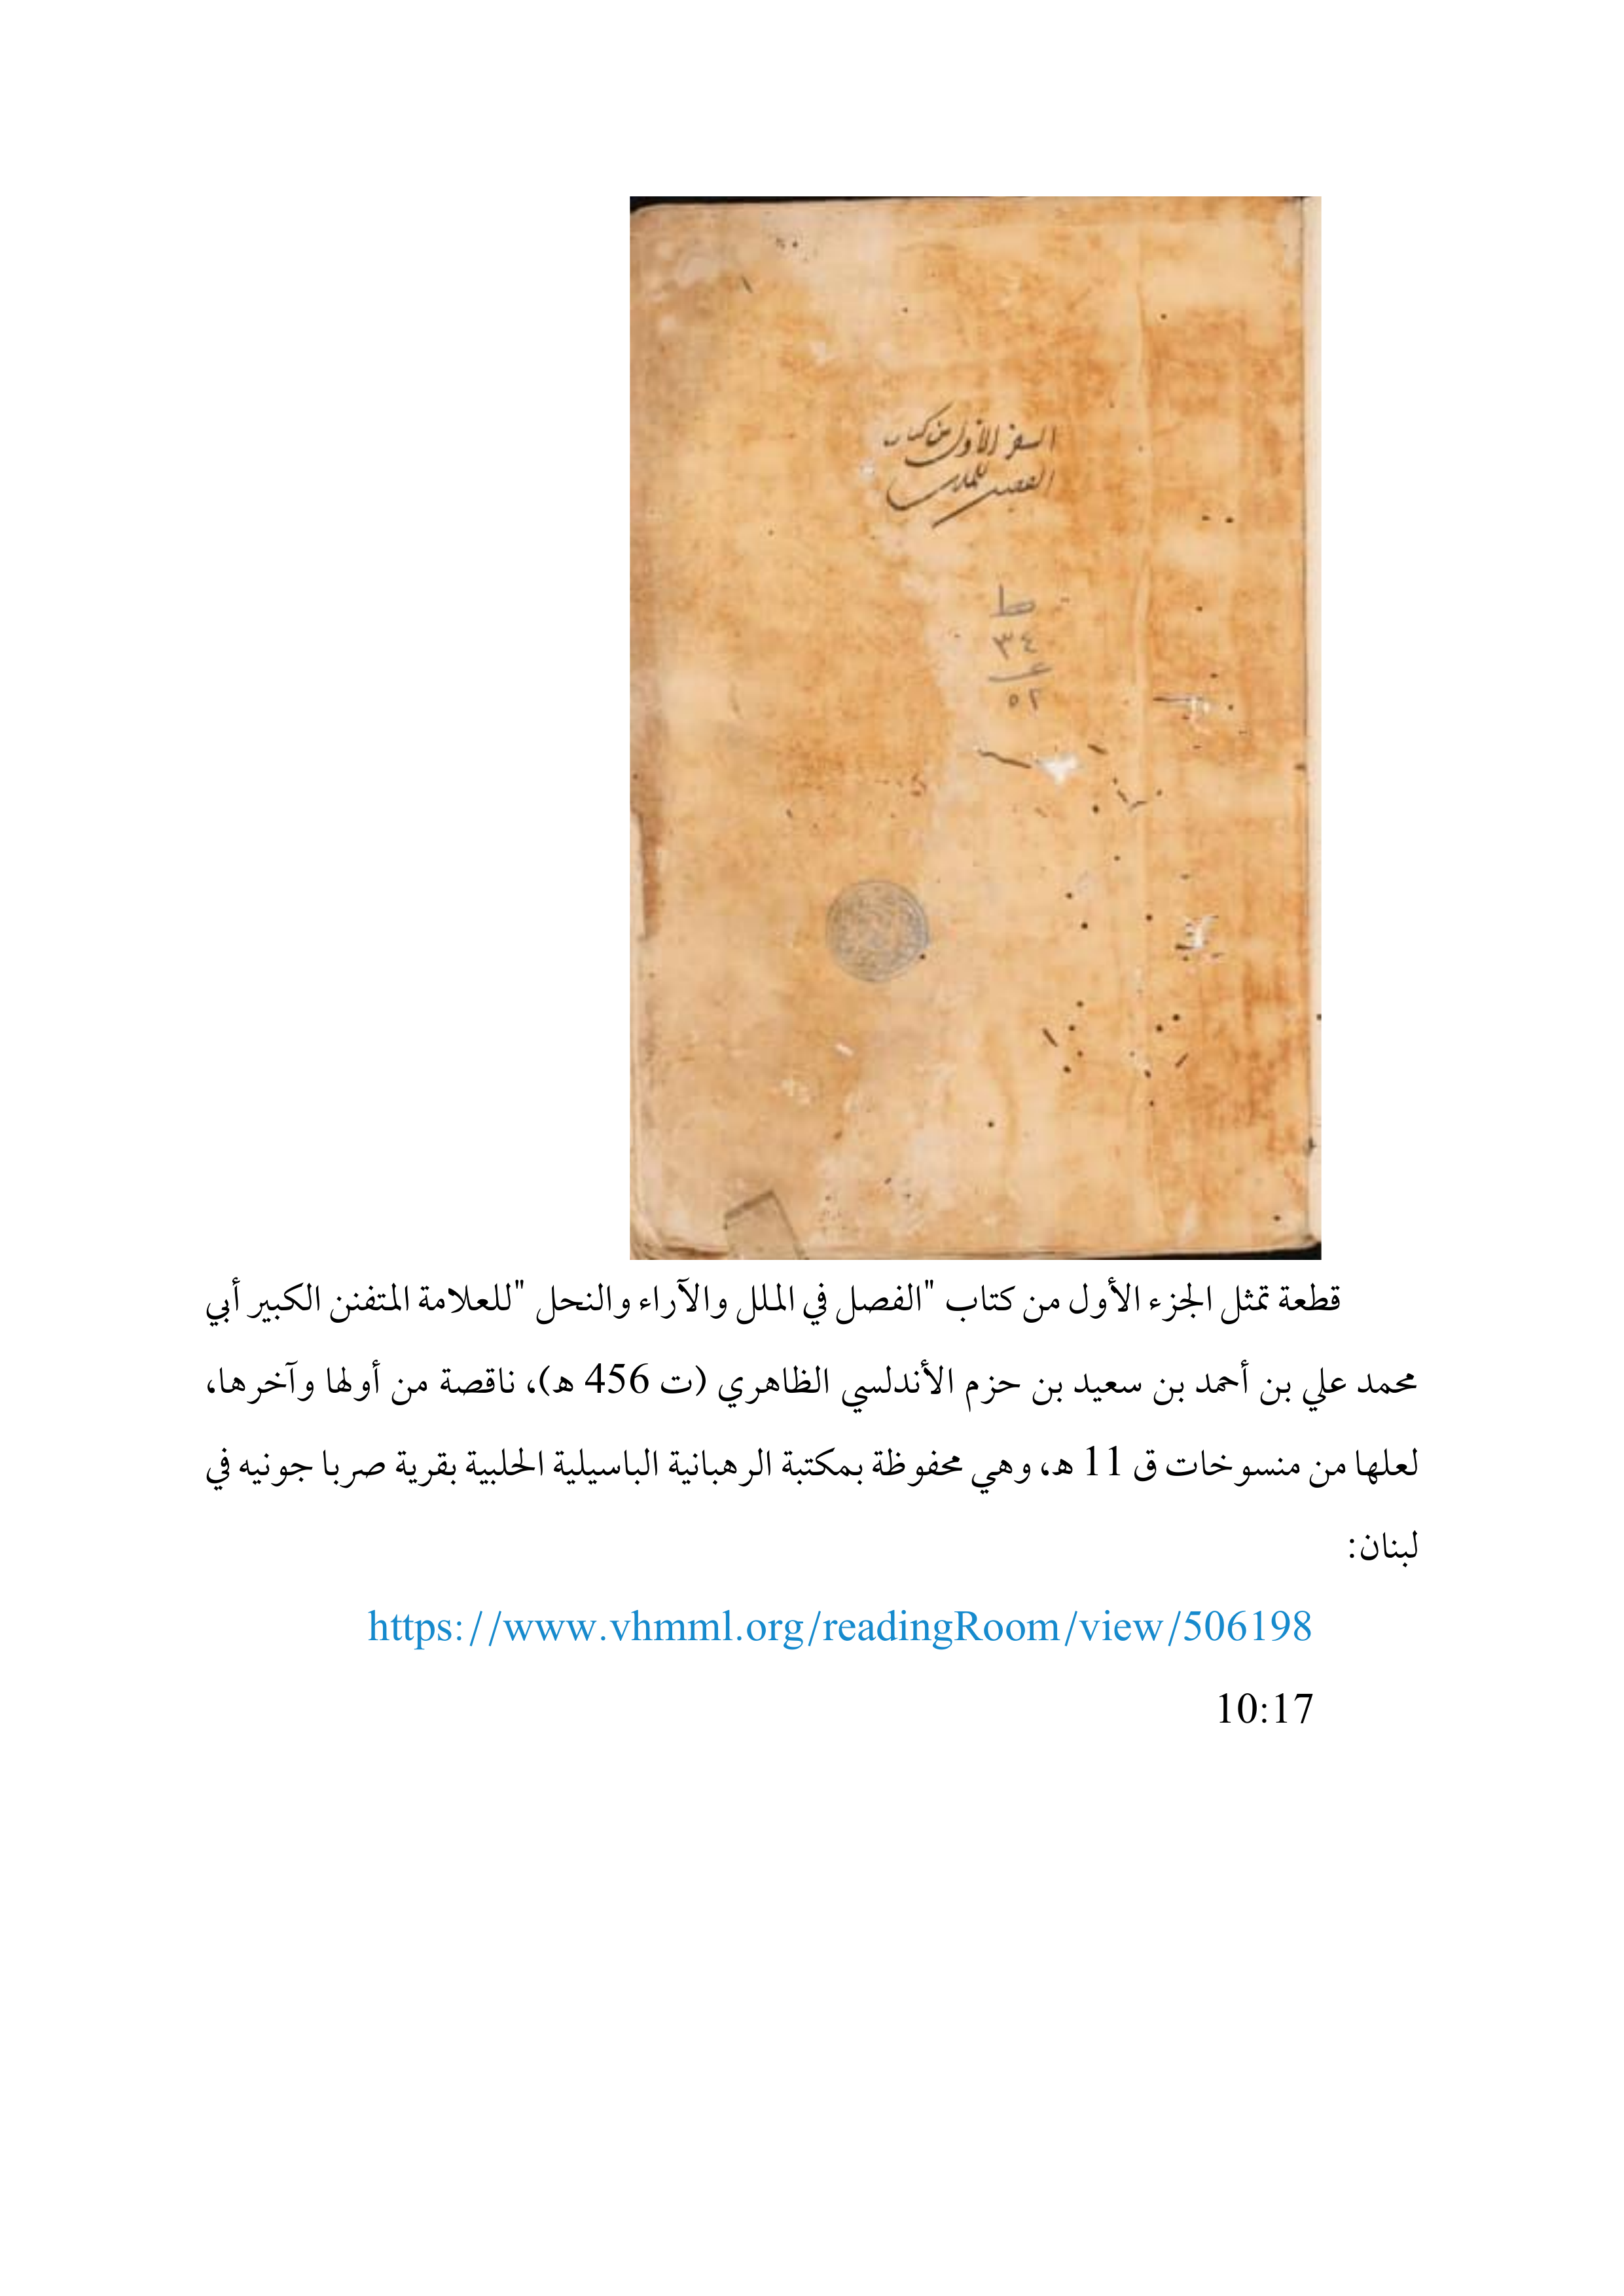 السفر الأول من كتاب
الفصل للملل
ط
٣٤
عـ
٥٢
قطعة تمثل الجزء الأول من كتاب "الفصل في الملل والآراء والنحل "للعلامة المتفنن الكبير أبي
محمد علي بن أحمد بن سعيد بن حزم الأندلسي الظاهري (ت 456 هـ)، ناقصة من أولها وآخرها،
لعلها من منسوخات ق 11 هـ، وهي محفوظة بمكتبة الرهبانية الباسيلية الحلبية بقرية صربا جونيه في
لبنان:
https://www.vhmml.org/readingRoom/view/506198
10:17